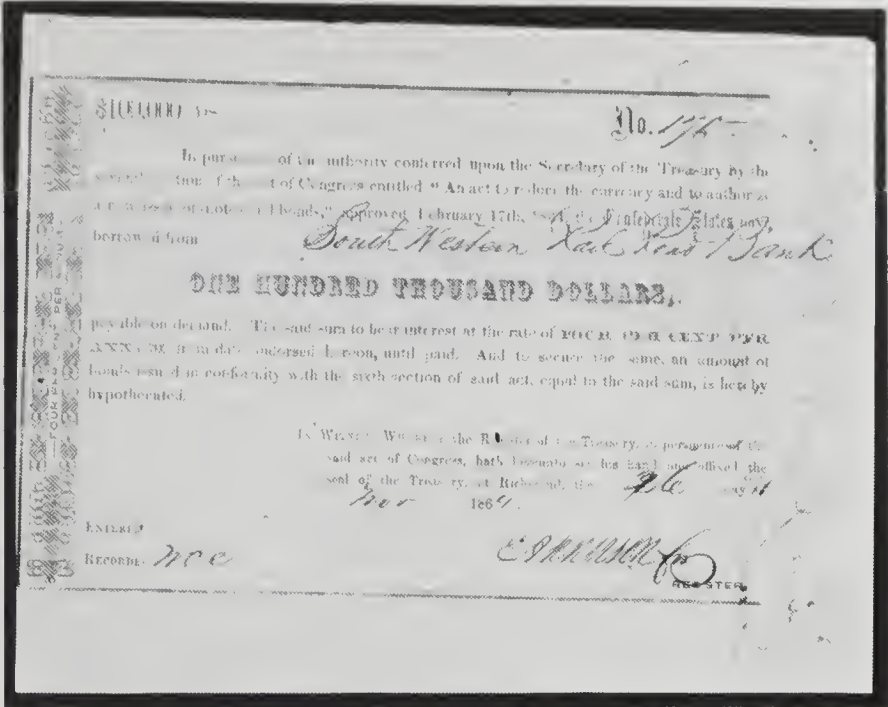 $100,000 No. 175
In pursuance of the authority conferred upon the Secretary of the Treasury by the
section of the act of Congress entitled "An act to reduce the currency and to authorize
a new issue of notes and bonds," approved February 17th, 1864, the Confederate States have
borrowed from South Western Rail Road Bank
ONE HUNDRED THOUSAND DOLLARS,
payable on demand. The said sum to bear interest at the rate of FOUR PER CENT PER
ANNUM from date endorsed hereon, until paid. And to secure the same, an amount of
bonds issued in conformity with the sixth section of said act, equal to the said sum, is hereby
hypothecated.
In Witness Whereof the Register of the Treasury, in pursuance of the
said act of Congress, hath hereunto set his hand and affixed the
seal of the Treasury, at Richmond, this 26 day of
Nov 1864.
ENTERED
RECORDED
REGISTER
FOUR PER CENT PER ANNUM